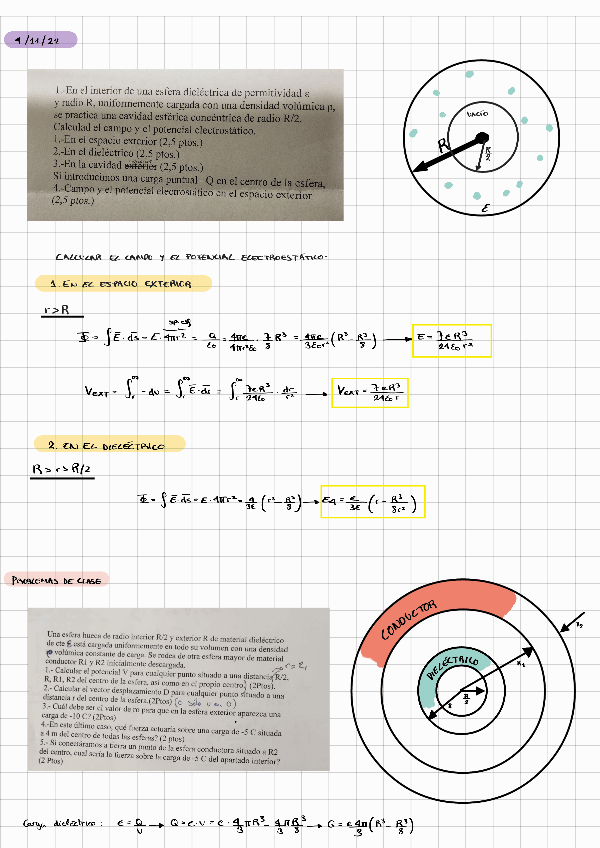 4/11/22
1.-En el interior de una esfera dieléctrica de permitividad ε
y radio R, uniformemente cargada con una densidad volúmica ρ,
se practica una cavidad esférica concéntrica de radio R/2.
Calculad el campo y el potencial electrostático.
1.-En el espacio exterior (2,5 ptos.)
2.-En el dieléctrico (2,5 ptos.)
3.-En la cavidad exterior (2,5 ptos.)
Si introducimos una carga puntual Q en el centro de la esfera,
4.-Campo y el potencial electrostático en el espacio exterior
(2,5 ptos.)
VACÍO
R
ε
CALCULAR EL CAMPO Y EL POTENCIAL ELECTROESTÁTICO.
1. EN EL ESPACIO EXTERIOR
r>R
E = 7ρR³/24ε₀r²
Vext = 7ρR³/24ε₀r
2. EN EL DIELÉCTRICO
R > r > R/2
PROBLEMAS DE CLASE
Una esfera hueca de radio interior R/2 y exterior R de material dieléctrico
de cte ε está cargada uniformemente en todo su volumen con una densidad
ρ volúmica constante de carga. Se rodea de otra esfera mayor de material
conductor R1 y R2 inicialmente descargada.
1.- Calcular el potencial V para cualquier punto situado a una distancia R/2,
R, R1, R2 del centro de la esfera, así como en el propio centro. (2Ptos).
2.- Calcular el vector desplazamiento D para cualquier punto situado a una
distancia r del centro de la esfera.(2Ptos)
3.- Cuál debe ser el valor de ro para que en la esfera exterior aparezca una
carga de -10 C? (2Ptos)
4.-En este último caso, qué fuerza actuaría sobre una carga de -5 C situada
a 4 m del centro de todas las esferas? (2 ptos)
5.- Si conectáramos a tierra un punto de la esfera conductora situado a R2
del centro, cual sería la fuerza sobre la carga de -5 C del apartado interior?
(2 Ptos)
CONDUCTOR
DIELÉCTRICO
R₂
R₁
R/2
Carga dieléctrico: ρ = Q/V → Q = ρ·V = ρ · 4/3 πR³ - 4/3 π R³/8 → Q = ρ 4π/3 (R³ - R³/8)